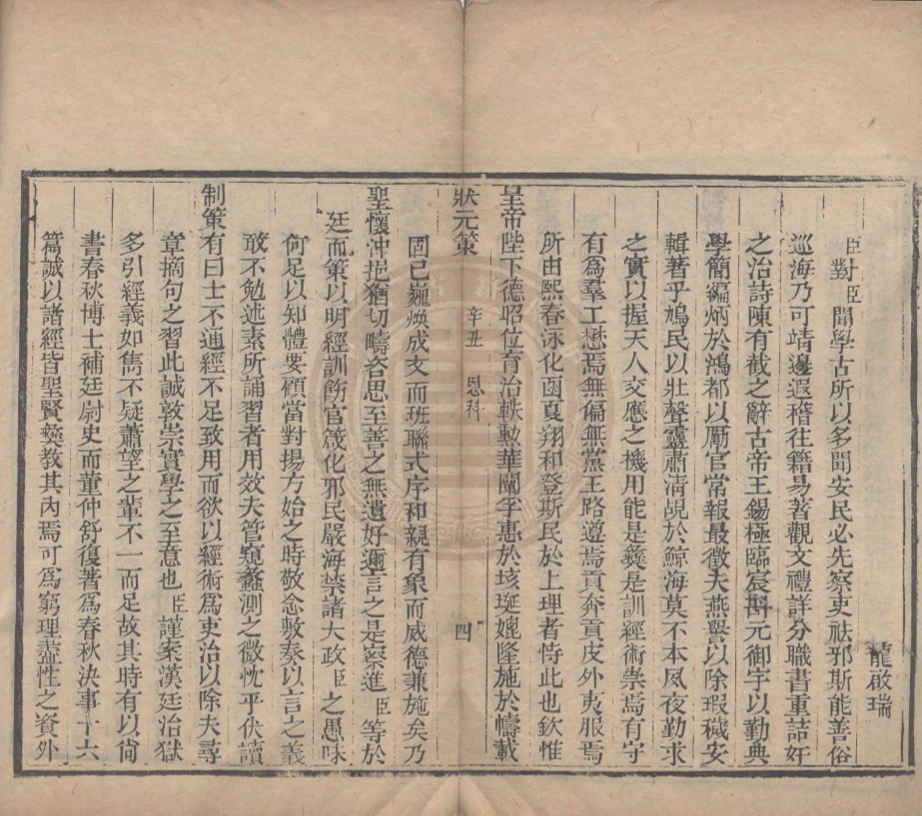 龍啟瑞
臣對臣聞學古所以多聞安民必先察吏祛邪斯能善俗
巡海乃可靖邊遐稽往籍易著觀文禮詳分職書重詰奸
之治詩陳有截之辭古帝王錫極臨宸斟元御宇以勤典
學簡編炳於鴻都以厲官常報最徵夫燕譽以除瑕穢安
輯著乎鳩民以壯聲靈肅清覘於鯨海莫不本夙夜勤求
之實以握天人交應之機用能是彝是訓經術崇焉有守
有為羣工懋焉無偏無黨王路遵焉貢奔貢皮外夷服焉
所由熙春泳化函夏翔和登斯民於上理者恃此也欽惟
皇帝陛下德昭位育治軼勳華闡孚惠於垓埏媲隆施於幬載
狀元策 辛丑 恩科 四
固已巍煥成文而班聯式序和親有象而威德兼施矣乃
聖懷沖挹猶切疇咨思至善之無遺好邇言之是察進臣等於
廷而策以明經訓飭官箴化邪民嚴海禁諸大政臣之愚昧
何足以知體要顧當對揚方始之時敬念敷奏以言之義
敢不勉述素所誦習者用效夫管窺蠡測之微忱乎伏讀
制策有曰士不通經不足致用而欲以經術為吏治以除夫尋
章摘句之習此誠敦崇實學之至意也臣謹案漢廷治獄
多引經義如雋不疑蕭望之輩不一而足故其時有以尚
書春秋博士補廷尉史而董仲舒復著為春秋決事十六
篇誠以諸經皆聖賢彝教其內焉可為窮理盡性之資外